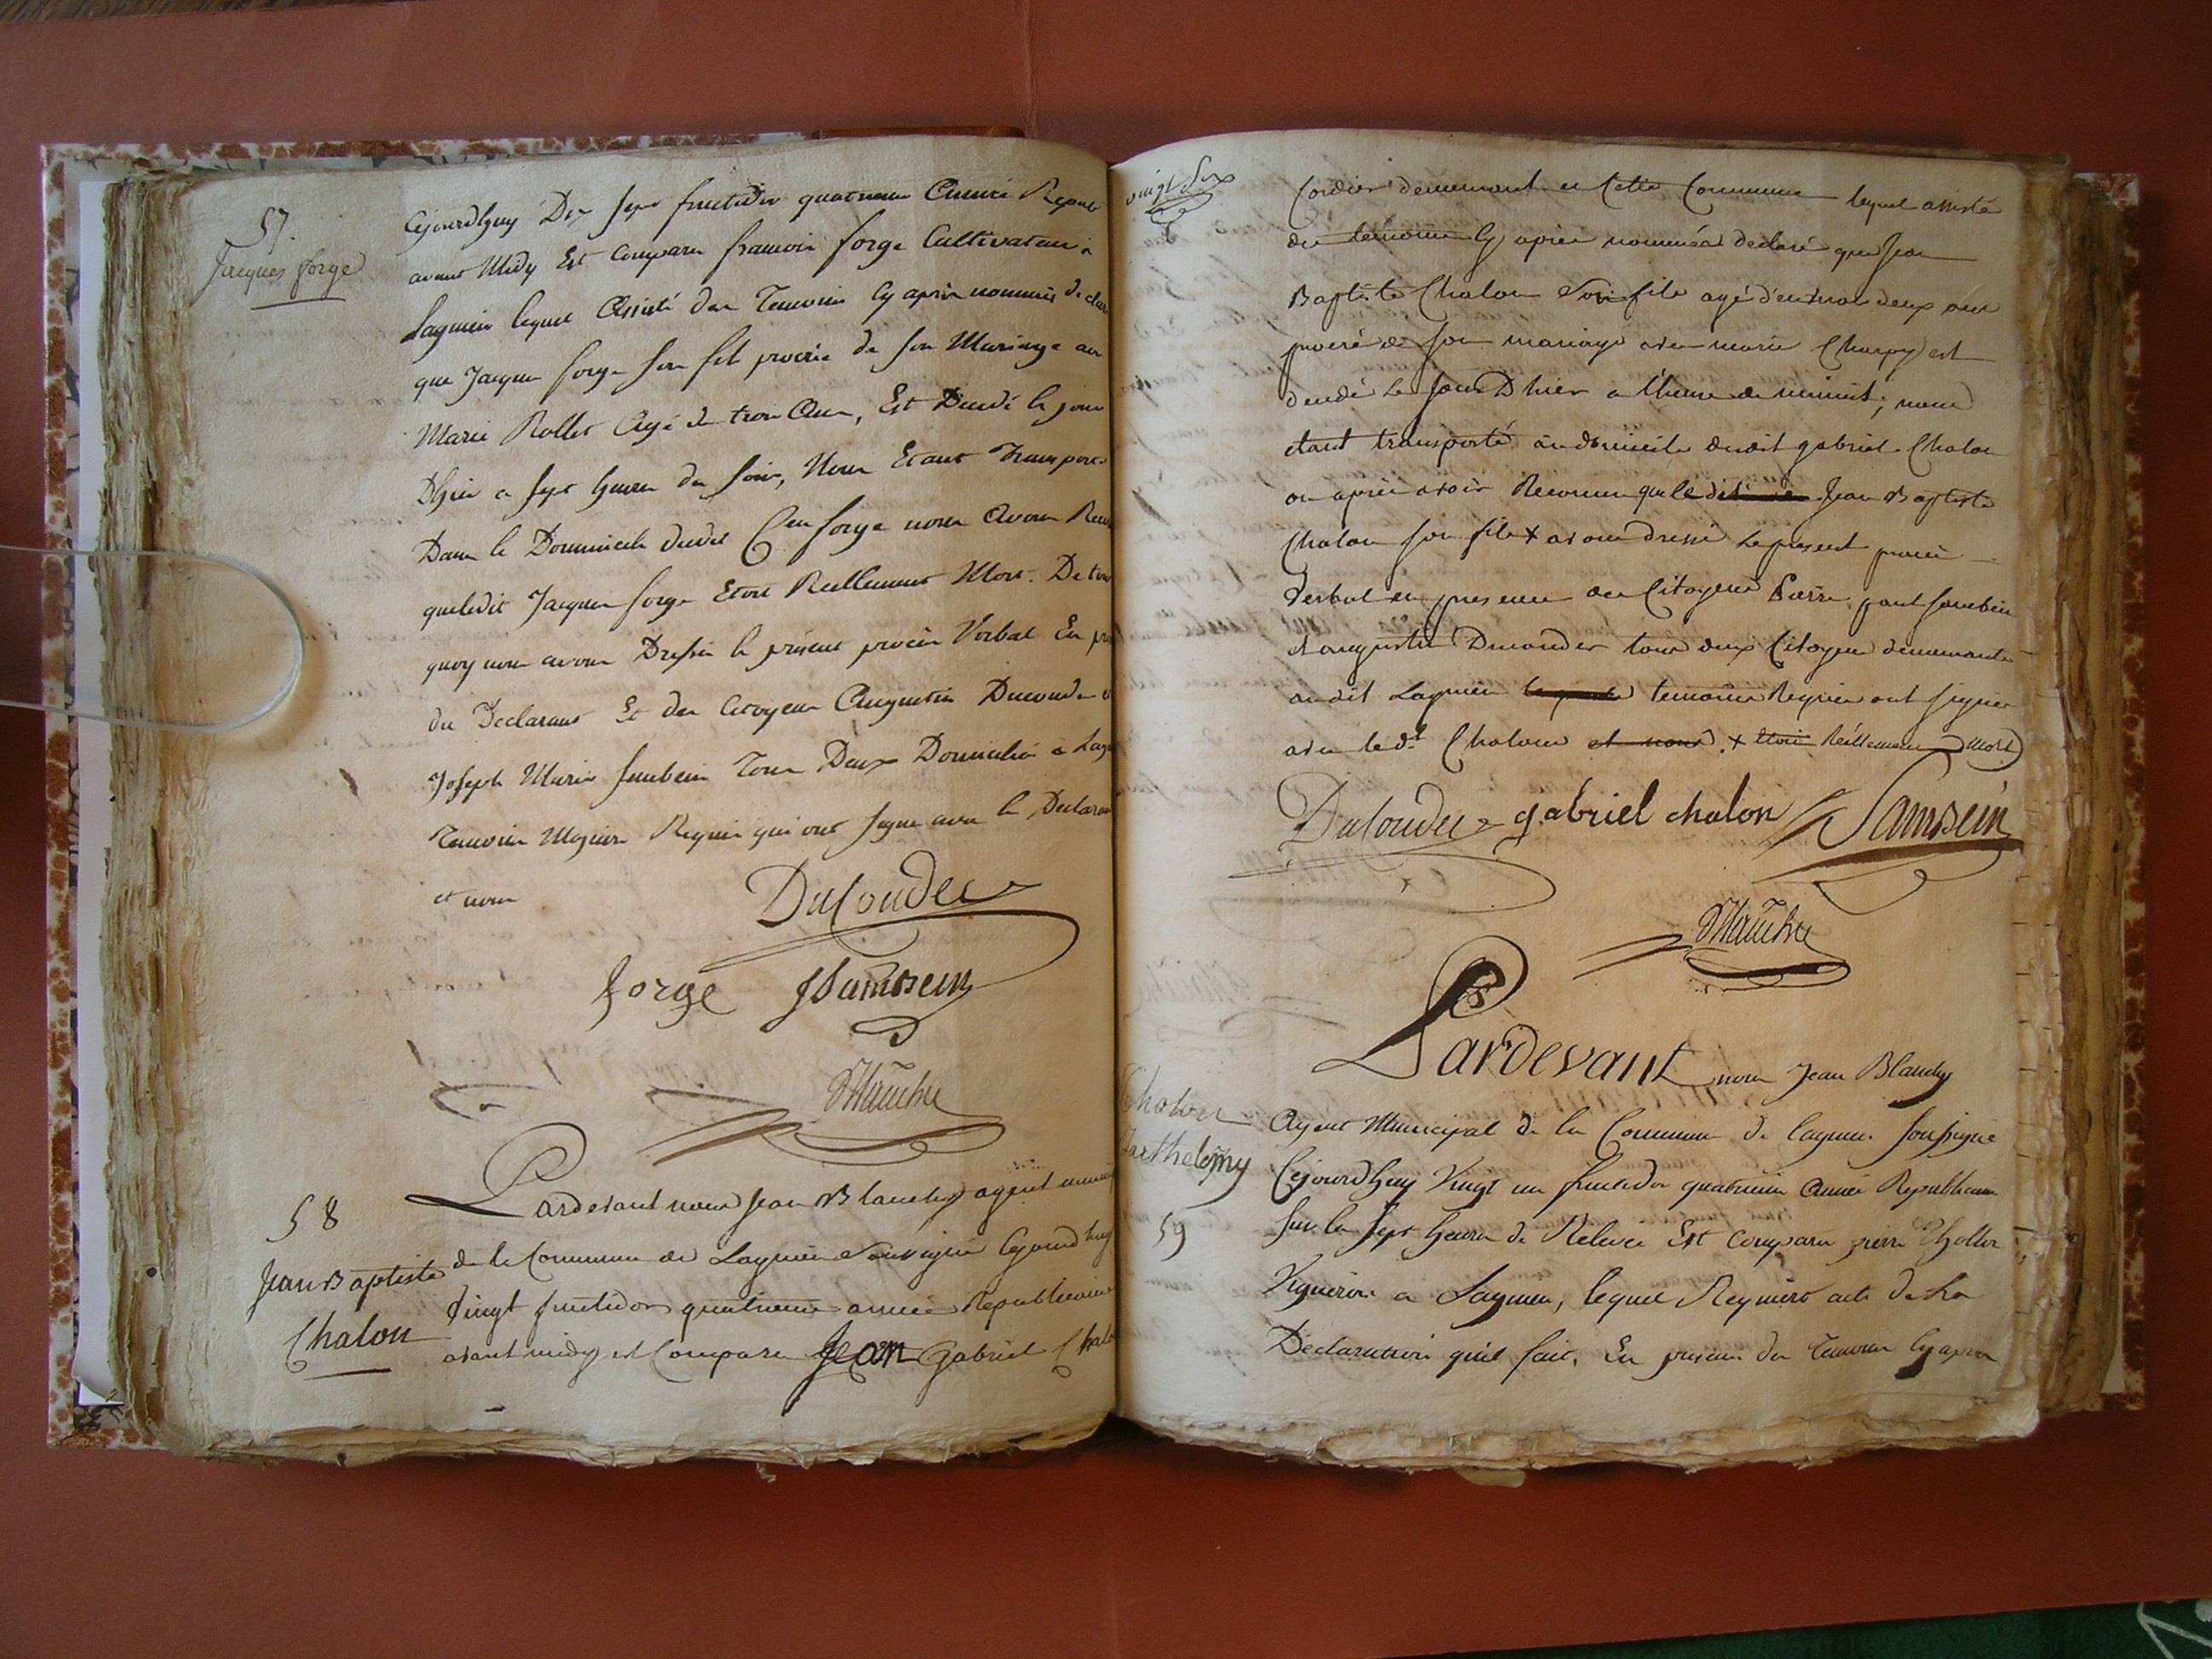 57.
Jacques forge
Cejourdhuy Dix sept fructidor quatrieme Année Repub
avant Midy Est comparu francois forge Cultivateur à
Lagnieu lequel Assisté des Temoins Cy après nommés declar
que Jacques forge son fils procréé de son Mariage av
Marie Rollet Agé de trois Ans, Est Decedé le jour
Dhier a sept heures du soir, Nous Etant Transporté
Dans le Domicile dudit Cen forge nous Avons Reco
queledit Jacques forge Etoit Reellement Mort. De tou
quoy nous avons Dressé le présent procès Verbal En pré
du Declarant Et des Citoyens Augustin Ducoudé
Joseph Marie Sambein Tous Deux Domiciliés à Lagn
Temoins Majeurs Requis qui ont signé avec le Declaran
et nous
Ducoudé
forge JSambein
JBlanchy
58
Jean Baptiste
Chalon
Pardevant nous Jean Blanchy agent munici
de la Commune de Lagnieu Soussigné Cejourdhuy
Vingt fructidor quatrieme année Republicaine
avant midy est Comparu Jean Gabriel Chalo
vingt six
Cordier demeurant en Cette Commune lequel assisté
des temoins Cy après nommés a declaré que Jean
Baptiste Chalon Son fils agé d'environ deux ans
procréé de son mariage avec marie Charpy est
decedé le jour D'hier a l'heure de minuit; nous
etant transporté au domicile dudit gabriel Chalon
ou après avoir Reconnu que le dit Jean Baptiste
Chalon son fils + avons dressé le present procès
Verbal en presence des Citoyens Pierre paul Sambein
et augustin Ducoudé tous deux Citoyens demeurants
audit Lagnieu temoins Requis ont signé
avec le dt Chalon et nous. + etoit Réellement Mort
Ducoudé gabriel chalon Sambein
JBlanchy
Chalon
Barthelemy
59
Pardevant nous Jean Blanchy
Agent Municipal de la Commune de lagnieu soussigné
Cejourdhuy Vingt un fructidor quatrieme Année Republicaine
sur les sept heures de Relevée Est comparu pierre Chollon
Vigneron a Lagnieu, lequel Requiert acte de La
Déclaration qu'il fait, En presence des Temoins Cy après